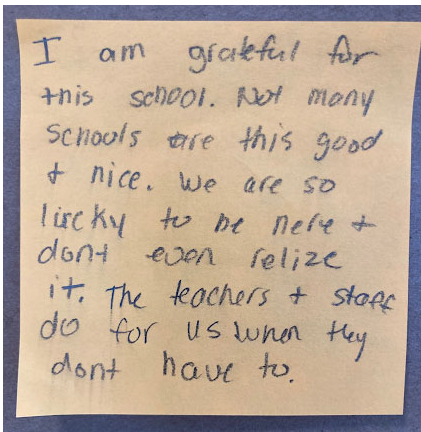 I am grateful for
this school. Not many
schools are this good
+ nice. We are so
lucky to be here +
dont even relize
it. The teachers + staff
do for us when they
dont have to.